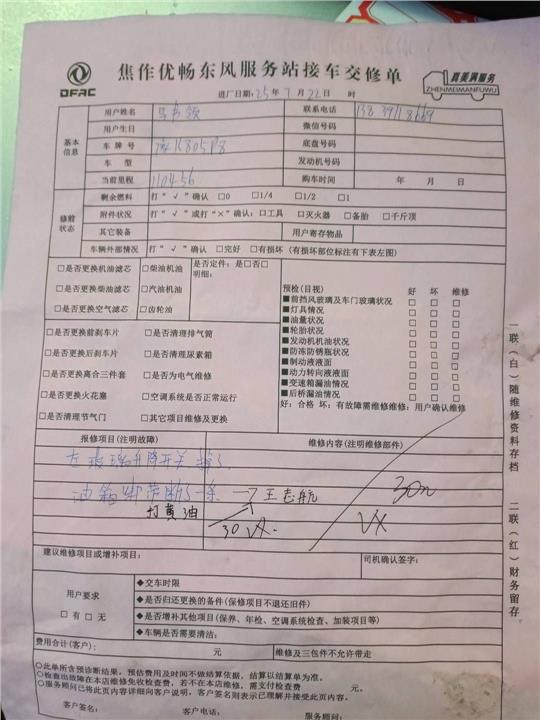 DFAC
焦作优畅东风服务站接车交修单
真美满服务
ZHENMEIMANFUWU
进厂日期：25年 7月22日 时
基本信息
用户姓名
联系电话
用户生日
微信号码
车 牌 号
底盘号码
车 型
发动机号码
当前里程 110456
购车时间 年 月 日
修前状态
剩余燃料 打“√”确认 □0 □1/4 □1/2 □1
附件状况 打“√”或打“×”确认：□工具 □灭火器 □备胎 □千斤顶
其它装备 用户寄存物品
车辆外部情况 打“√”确认 □完好 □有损坏（有损坏部位标注有下表左图）
□是否更换机油滤芯 □柴油机油
□是否更换柴油滤芯 □汽油机油
□是否更换空气滤芯 □齿轮油
是否定件：是□否□
明细：
□是否更换前刹车片 □是否清理排气筒
□是否更换后刹车片 □是否清理尿素箱
□是否更换离合三件套 □是否为电气维修
□是否更换火花塞 □空调系统是否正常运行
□是否清理节气门 □其它项目维修及更换
预检（目视） 好 坏 维修
■前挡风玻璃及车门玻璃状况 □ □ □
■灯具情况 □ □ □
■油量状况 □ □ □
■轮胎状况 □ □ □
■发动机机油状况 □ □ □
■防冻防锈瓶状况 □ □ □
■制动液液面 □ □ □
■动力转向液液面 □ □ □
■变速箱漏油情况 □ □ □
■后桥漏油情况 □ □ □
好：合格 坏：有故障需维修维修：用户确认维修
报修项目（注明故障） 维修内容（注明维修部件）
升降开关
油箱 带断了一条 王志航
打黄油
30
建议维修项目或增补项目： 司机确认签字：
用户要求
□有 □无
◆交车时限
◆是否归还更换的备件（保修项目不退还旧件）
◆是否增补其他项目（保养、年检、空调系统检查、加装项目等）
◆车辆是否需要清洁：
费用合计(客户)： 元 维修及三包件不允许带走
○此单所含预诊断结果，预估费用及时间不做结算依据，结算以结算单为准。
○检查出故障在本店维修免收检查费，若不在本店维修，需支付检查费 元。
○服务顾问已将此页内容详细向客户说明，客户签名则表示已理解并接受此页内容。
客户签名： 客户电话： 服务顾问：
一联（白）随维修资料存档
二联（红）财务留存